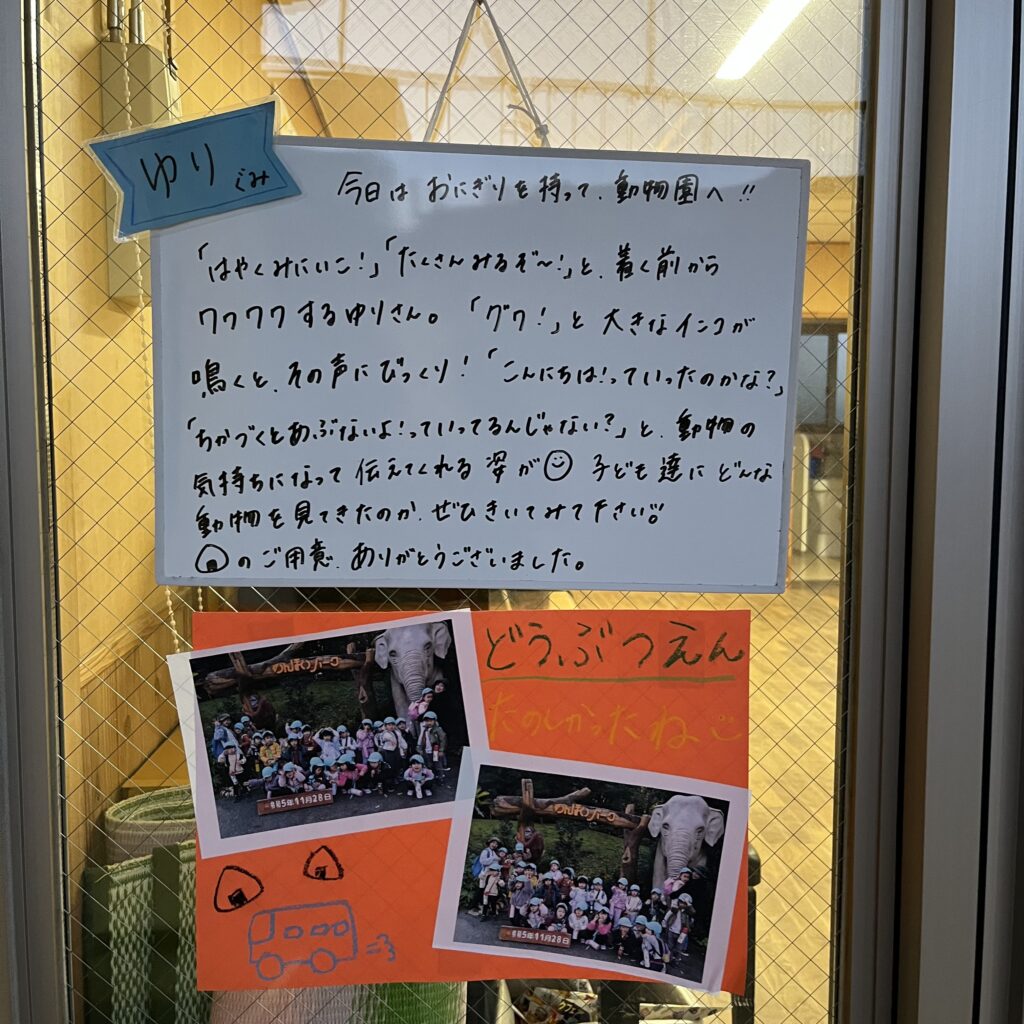 ゆりぐみ
今日は おにぎりを持って、動物園へ!!
「はやくみにいこ!」「たくさんみるぞ〜!」と、着く前から
ワクワクするゆりさん。「グワ!」と 大きなインコが
鳴くと、その声にびっくり!「こんにちは!っていったのかな?」
「ちかづくとあぶないよ!っていってるんじゃない?」と、動物の
気持ちになって 伝えてくれる 姿が 子ども達に どんな
動物を見てきたのか、ぜひきいてみて下さい!!
のご用意、ありがとうございました。
どうぶつえん
たのしかったね
のんほいパーク
令和5年11月28日
のんほいパーク
令和5年11月28日